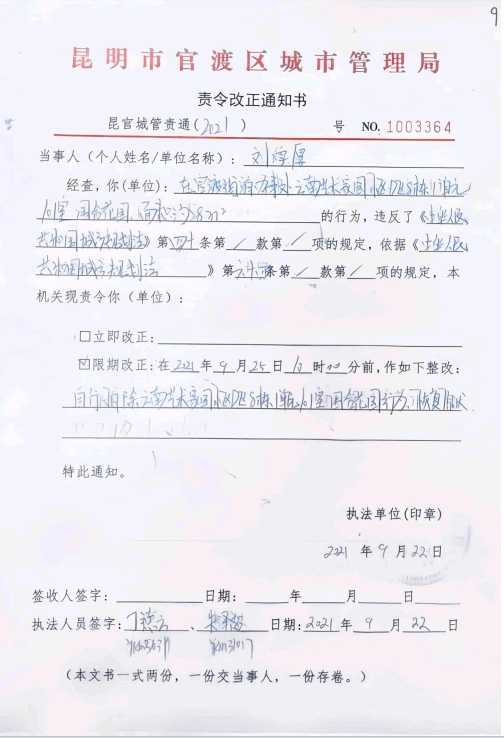 9
昆明市官渡区城市管理局
责令改正通知书
昆官城管责通(2021 ) 号 NO. 1003364
当事人（个人姓名/单位名称）：刘淳厚
经查，你(单位)：在官渡街道办事处云南映象家园小区D区8栋1单元
101室 围合花园，面积约58m² 的行为，违反了《中华人民
共和国城乡规划法》第四十条第/款第/项的规定，依据《中华人民
共和国城乡规划法 》第六十四条第/款第/项的规定，本
机关现责令你（单位）：
□立即改正：
☑限期改正：在2021年9月25日10时00分前，作如下整改：
自行拆除云南映象家园小区D区8栋1单元101室围合花园行为，恢复原状
特此通知。
执法单位(印章)
2021 年 9 月 22 日
签收人签字： 日期： 年 月 日
执法人员签字： 、 日期：2021 年 9 月 22 日
（本文书一式两份，一份交当事人，一份存卷。）